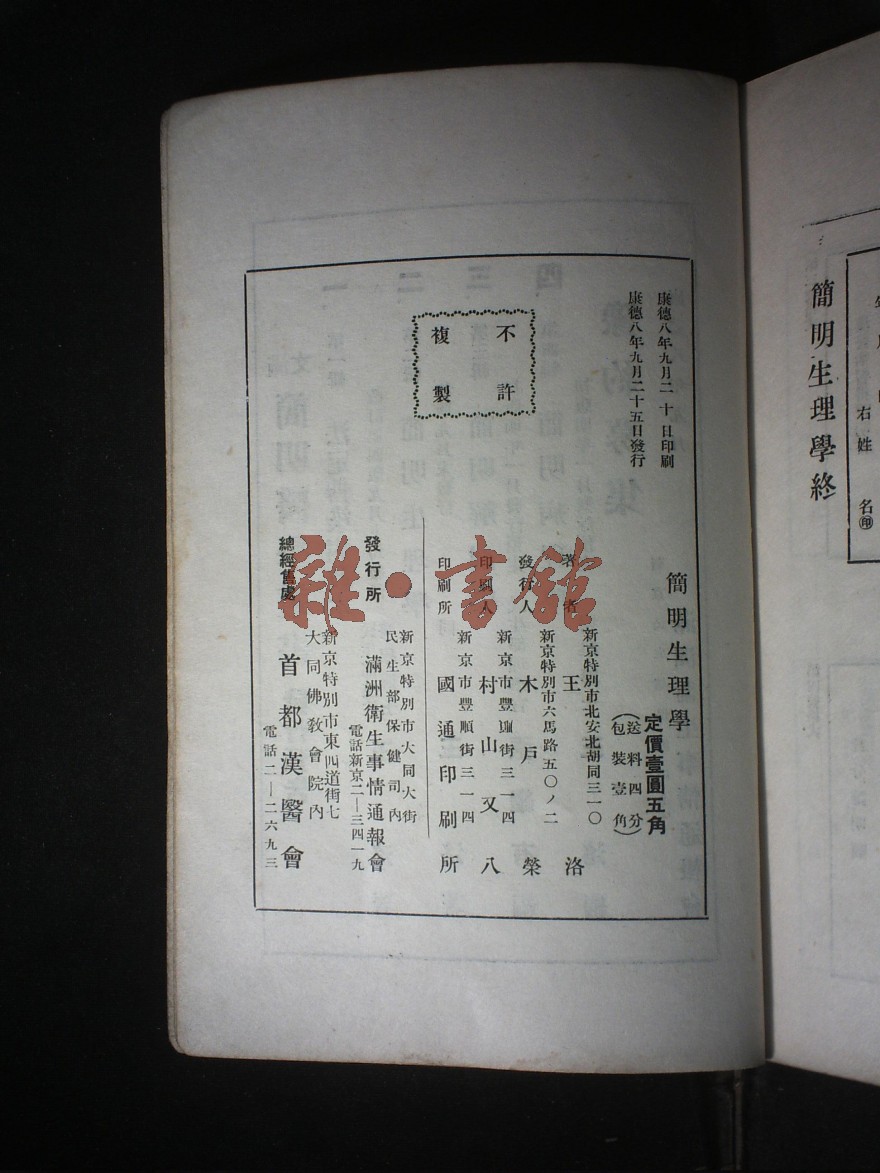 右姓 名㊞
簡明生理學終
康德八年九月二十日印刷
康德八年九月二十五日發行
不許
複製
簡明生理學
定價壹圓五角
(送料四分
包裝壹角)
新京特別市北安北胡同三一〇
著者 王 洛
新京特別市六馬路五〇ノ二
發行人 木戶 榮
新京市豐順街三一四
印刷人 村山又八
新京市豐順街三一四
印刷所 國通印刷所
新京特別市大同大街
民生部保健司內
發行所 滿洲衛生事情通報會
電話新京二—三四一九
新京特別市東四道街七
大同佛教會院內
總經售處 首都漢醫會
電話二—二六九三
雜·書館